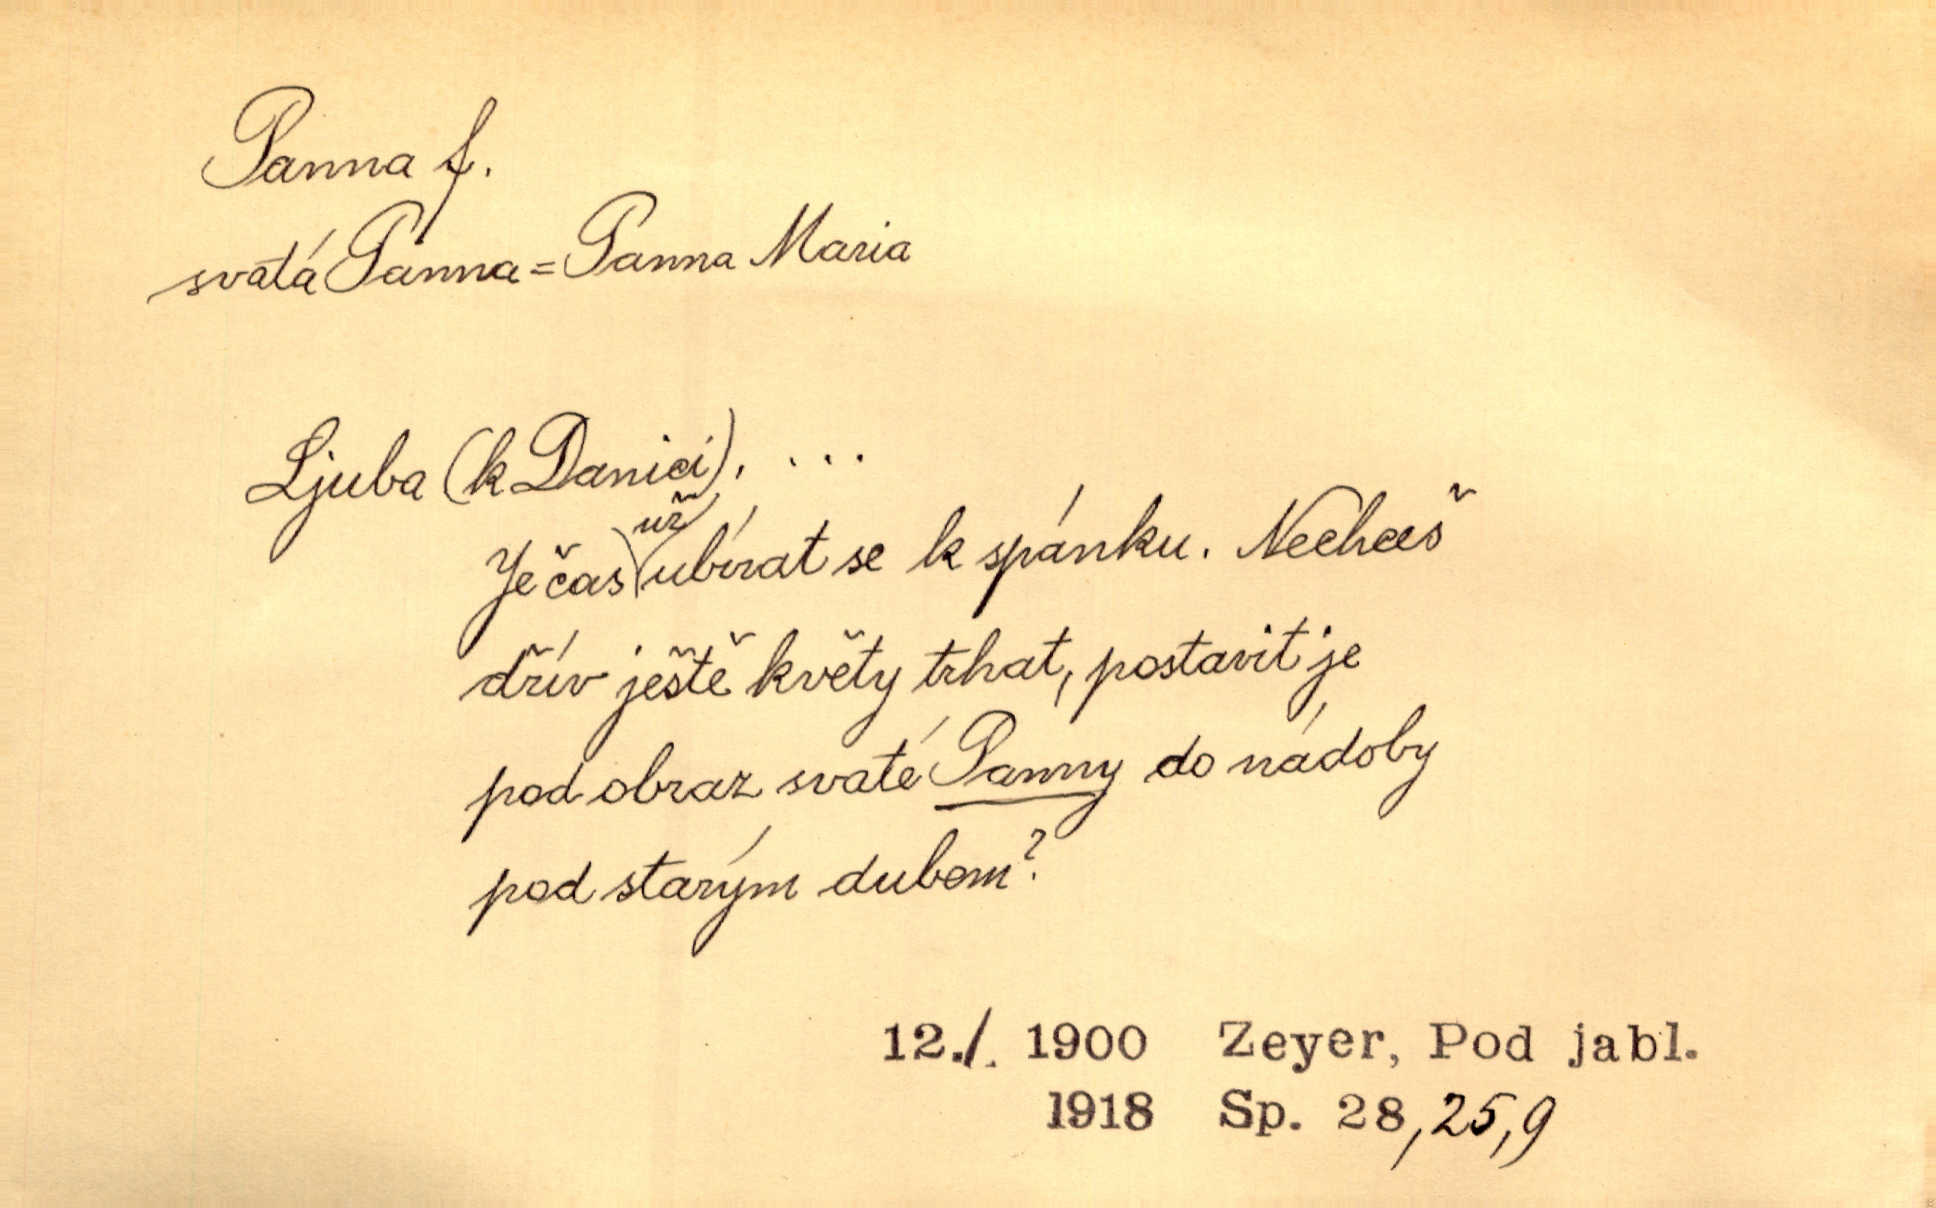 Panna f.
svatá Panna = Panna Maria
Ljuba (k Danici). ...
Je čas už ubírat se k spánku. Nechceš
dřív ještě květy trhat, postavit je
pod obraz svaté Panny do nádoby
pod starým dubem?
12./. 1900 Zeyer, Pod jabl.
1918 Sp. 28,25,9